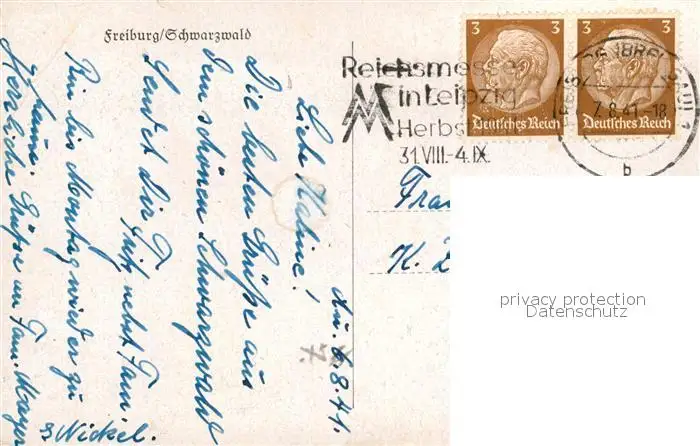 Freiburg/Schwarzwald
3 3 3 3
Reichsmesse
in Leipzig
Herbst
31.VIII.-4.IX.
Deutsches Reich
Deutsches Reich
7.8.41-18
b
Fra
K.
privacy protection
Datenschutz
d. 6.8.41.
7.
Liebe
Die besten Grüße aus
dem schönen Schwarzwald
sendet Dir
Fritz nebst Fam.
Bin bis Montag wieder zu
Hause.
Herzliche Grüße an Fam. Mayer
Nickel.